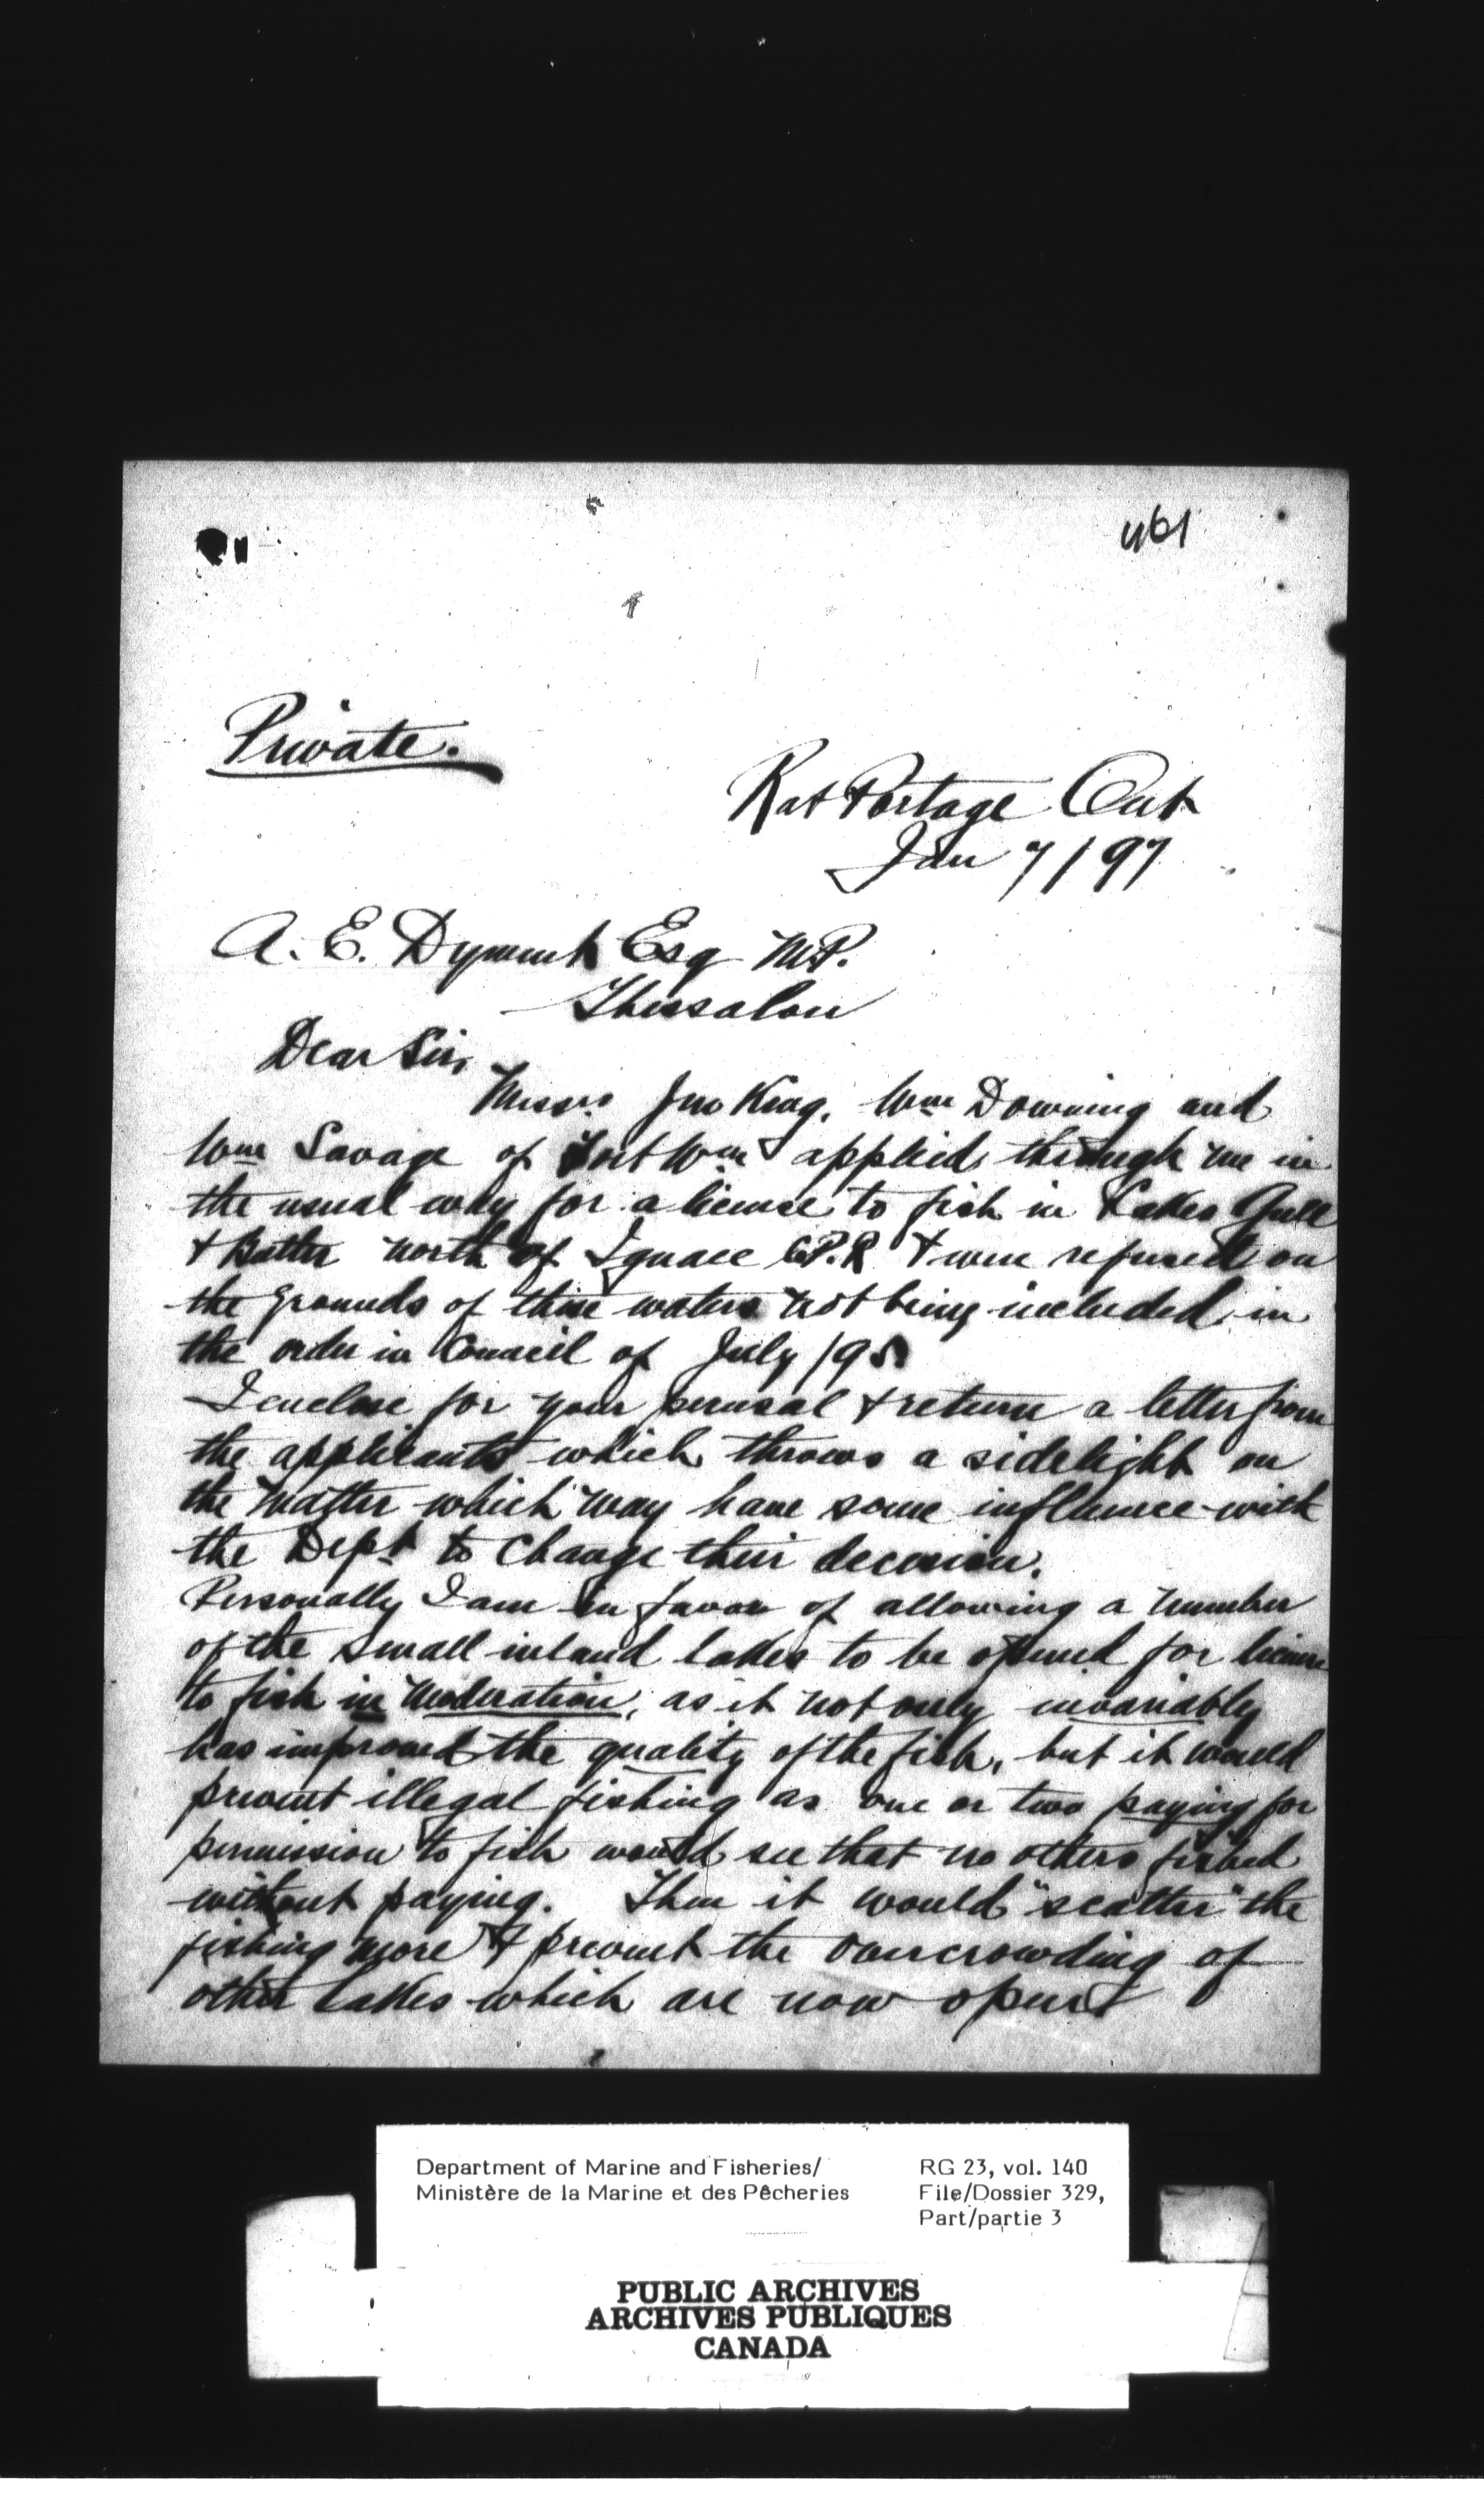 461
Private.
Rat Portage Ont
Jan 7/97
A. E. Dyment Esq M.P.
Thessalon
Dear Sir,
Messrs. Jno King, Wm Downing and
Wm Savage of Fort Wm applied through me in
the usual way for a license to fish in Lakes Gull
& north of Ignace C.P.R & were refused on
the grounds of these waters not being included in
the order in Council of July /95
I enclose for your perusal & return a letter from
the applicants which throws a sidelight on
the matter which may have some influence with
the Dept to change their decision.
Personally I am in favor of allowing a number
of the small inland lakes to be opened for license
to fish in moderation, as it not only invariably
has improved the quality of the fish, but it would
prevent illegal fishing as one or two paying for
permission to fish would see that no others fished
without paying. Then it would "scatter" the
fishing more & prevent the overcrowding of
other lakes which are now opened
Department of Marine and Fisheries/
Ministère de la Marine et des Pêcheries
RG 23, vol. 140
File/Dossier 329,
Part/partie 3
PUBLIC ARCHIVES
ARCHIVES PUBLIQUES
CANADA